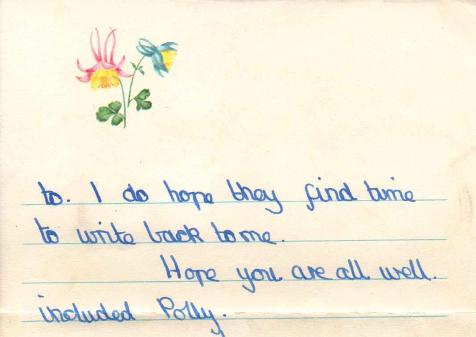 to. I do hope they find time
to write back to me.
Hope you are all well.
included Polly.